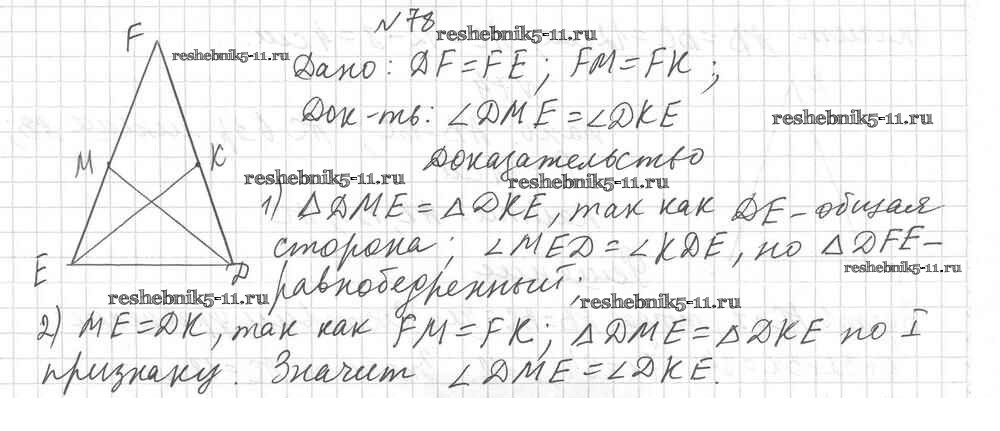 №78
reshebnik5-11.ru
F
reshebnik5-11.ru
Дано: DF = FE; FM = FK;
Док-ть: ∠DME = ∠DKE
reshebnik5-11.ru
Доказательство
M
K
reshebnik5-11.ru
reshebnik5-11.ru
1) △DME = △DKE, так как DE – общая
сторона; ∠MED = ∠KDE, по △DFE –
E
D
reshebnik5-11.ru
равнобедренный;
reshebnik5-11.ru
reshebnik5-11.ru
2) ME = DK, так как FM = FK; △DME = △DKE по I
признаку. Значит ∠DME = ∠DKE.
reshebnik5-11.ru
reshebnik5-11.ru